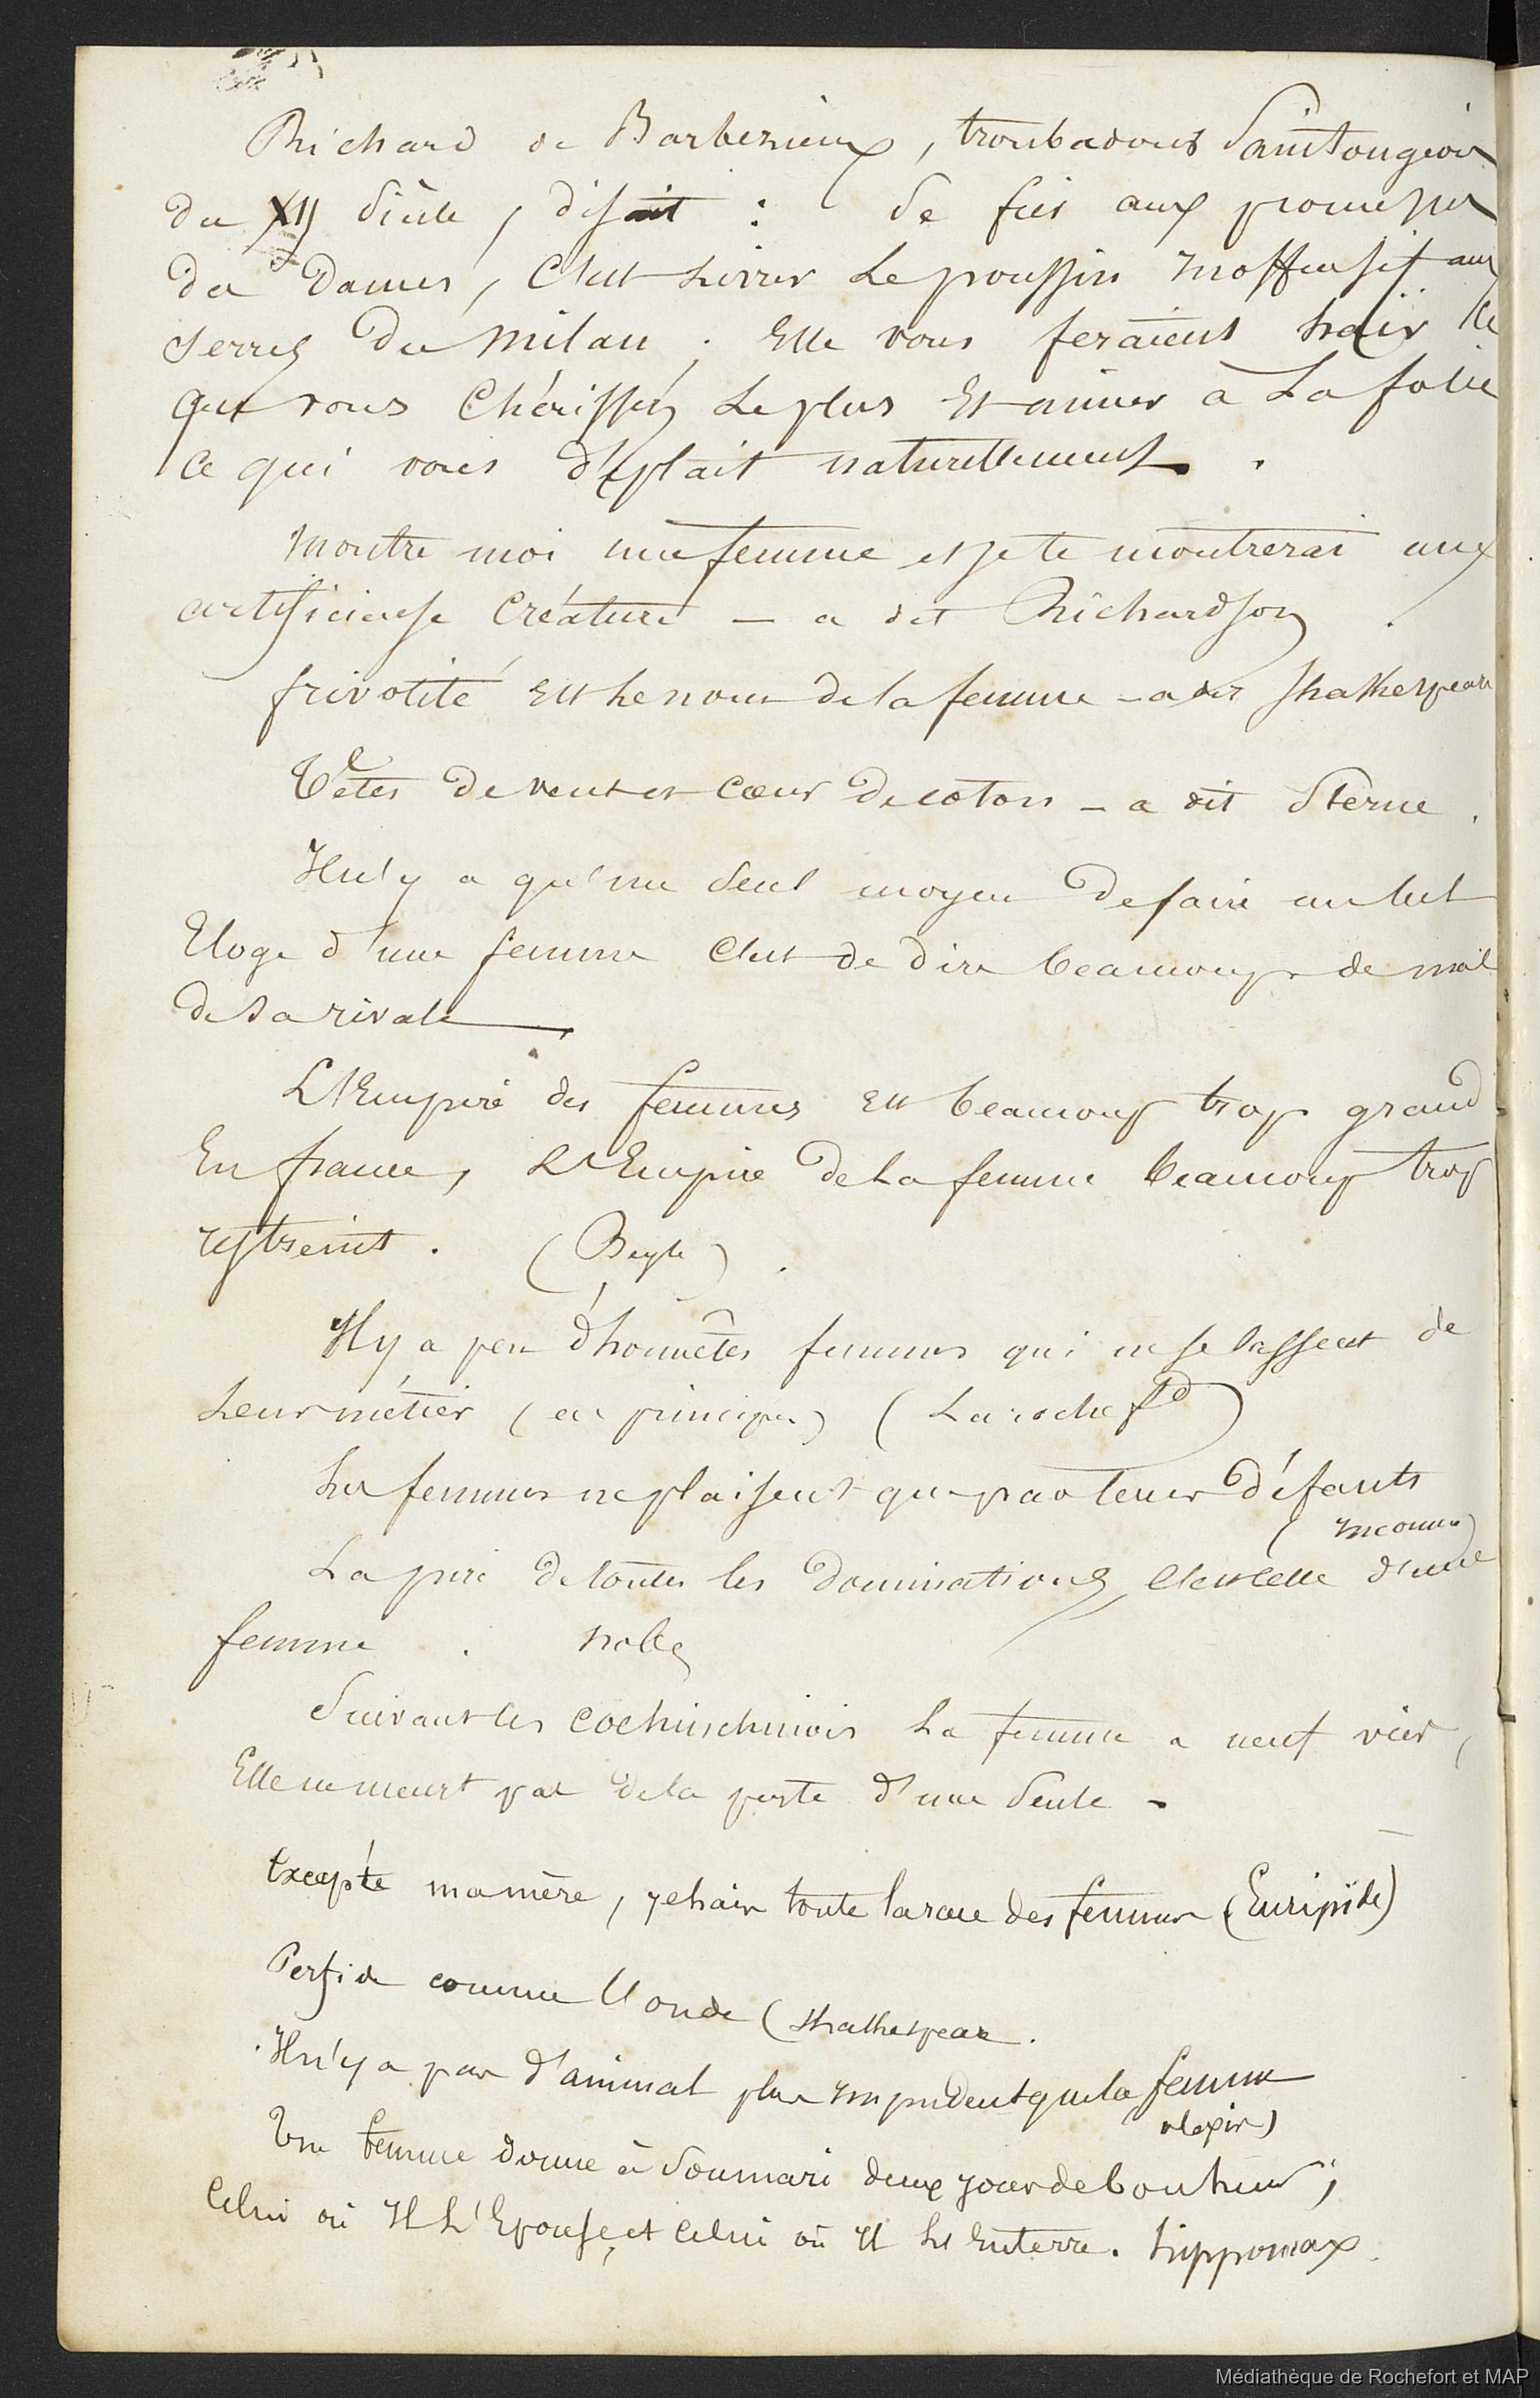 Richard de Barbezieux, troubadour Saintongeois
du XII Siècle, disait : Se fier aux promesses
des Dames, C'est Livrer Le poussin Inoffensif aux
serres du Milan ; Elle vous feraient haïr Ce
que vous Chérissez Le plus Et aimer à La folie
Ce qui vous déplait naturellement .
Montre moi une femme et je te montrerai une
artificieuse Créature — a dit Richardson .
frivolité Est Le nom de la femme — a dit Shakespeare
Têtes de vent et Cœur de coton — a dit Sterne .
Il n'y a qu'un Seul moyen de faire un bel
Eloge d'une femme C'est de dire beaucoup de mal
de Sa rivale
L'Empire des femmes Est beaucoup trop grand
En france, L'Empire de La femme beaucoup trop
restreint . (Beyle) .
Il y a peu d'honnêtes femmes qui ne se lassent de
Leur métier (en principe) (Larochef^d)
Les femmes ne plaisent que par leurs défauts
(Inconnu)
La pire de toutes les Dominations, C'est celle d'une
femme .
Suivant les cochinchinois La femme a neuf vies,
Elle ne meurt pas de la perte d'une Seule .
Excepté ma mère, je hais toute la race des femmes (Euripide)
Perfide comme l'onde (Shakespear .
Il n'y a pas d'animal plus Impudent que la femme
alexis)
Une femme donne à Son mari deux jours de bonheur ;
Celui où Il L'Epouse, et Celui où Il L'Enterre. hipponax .
Médiathèque de Rochefort et MAP